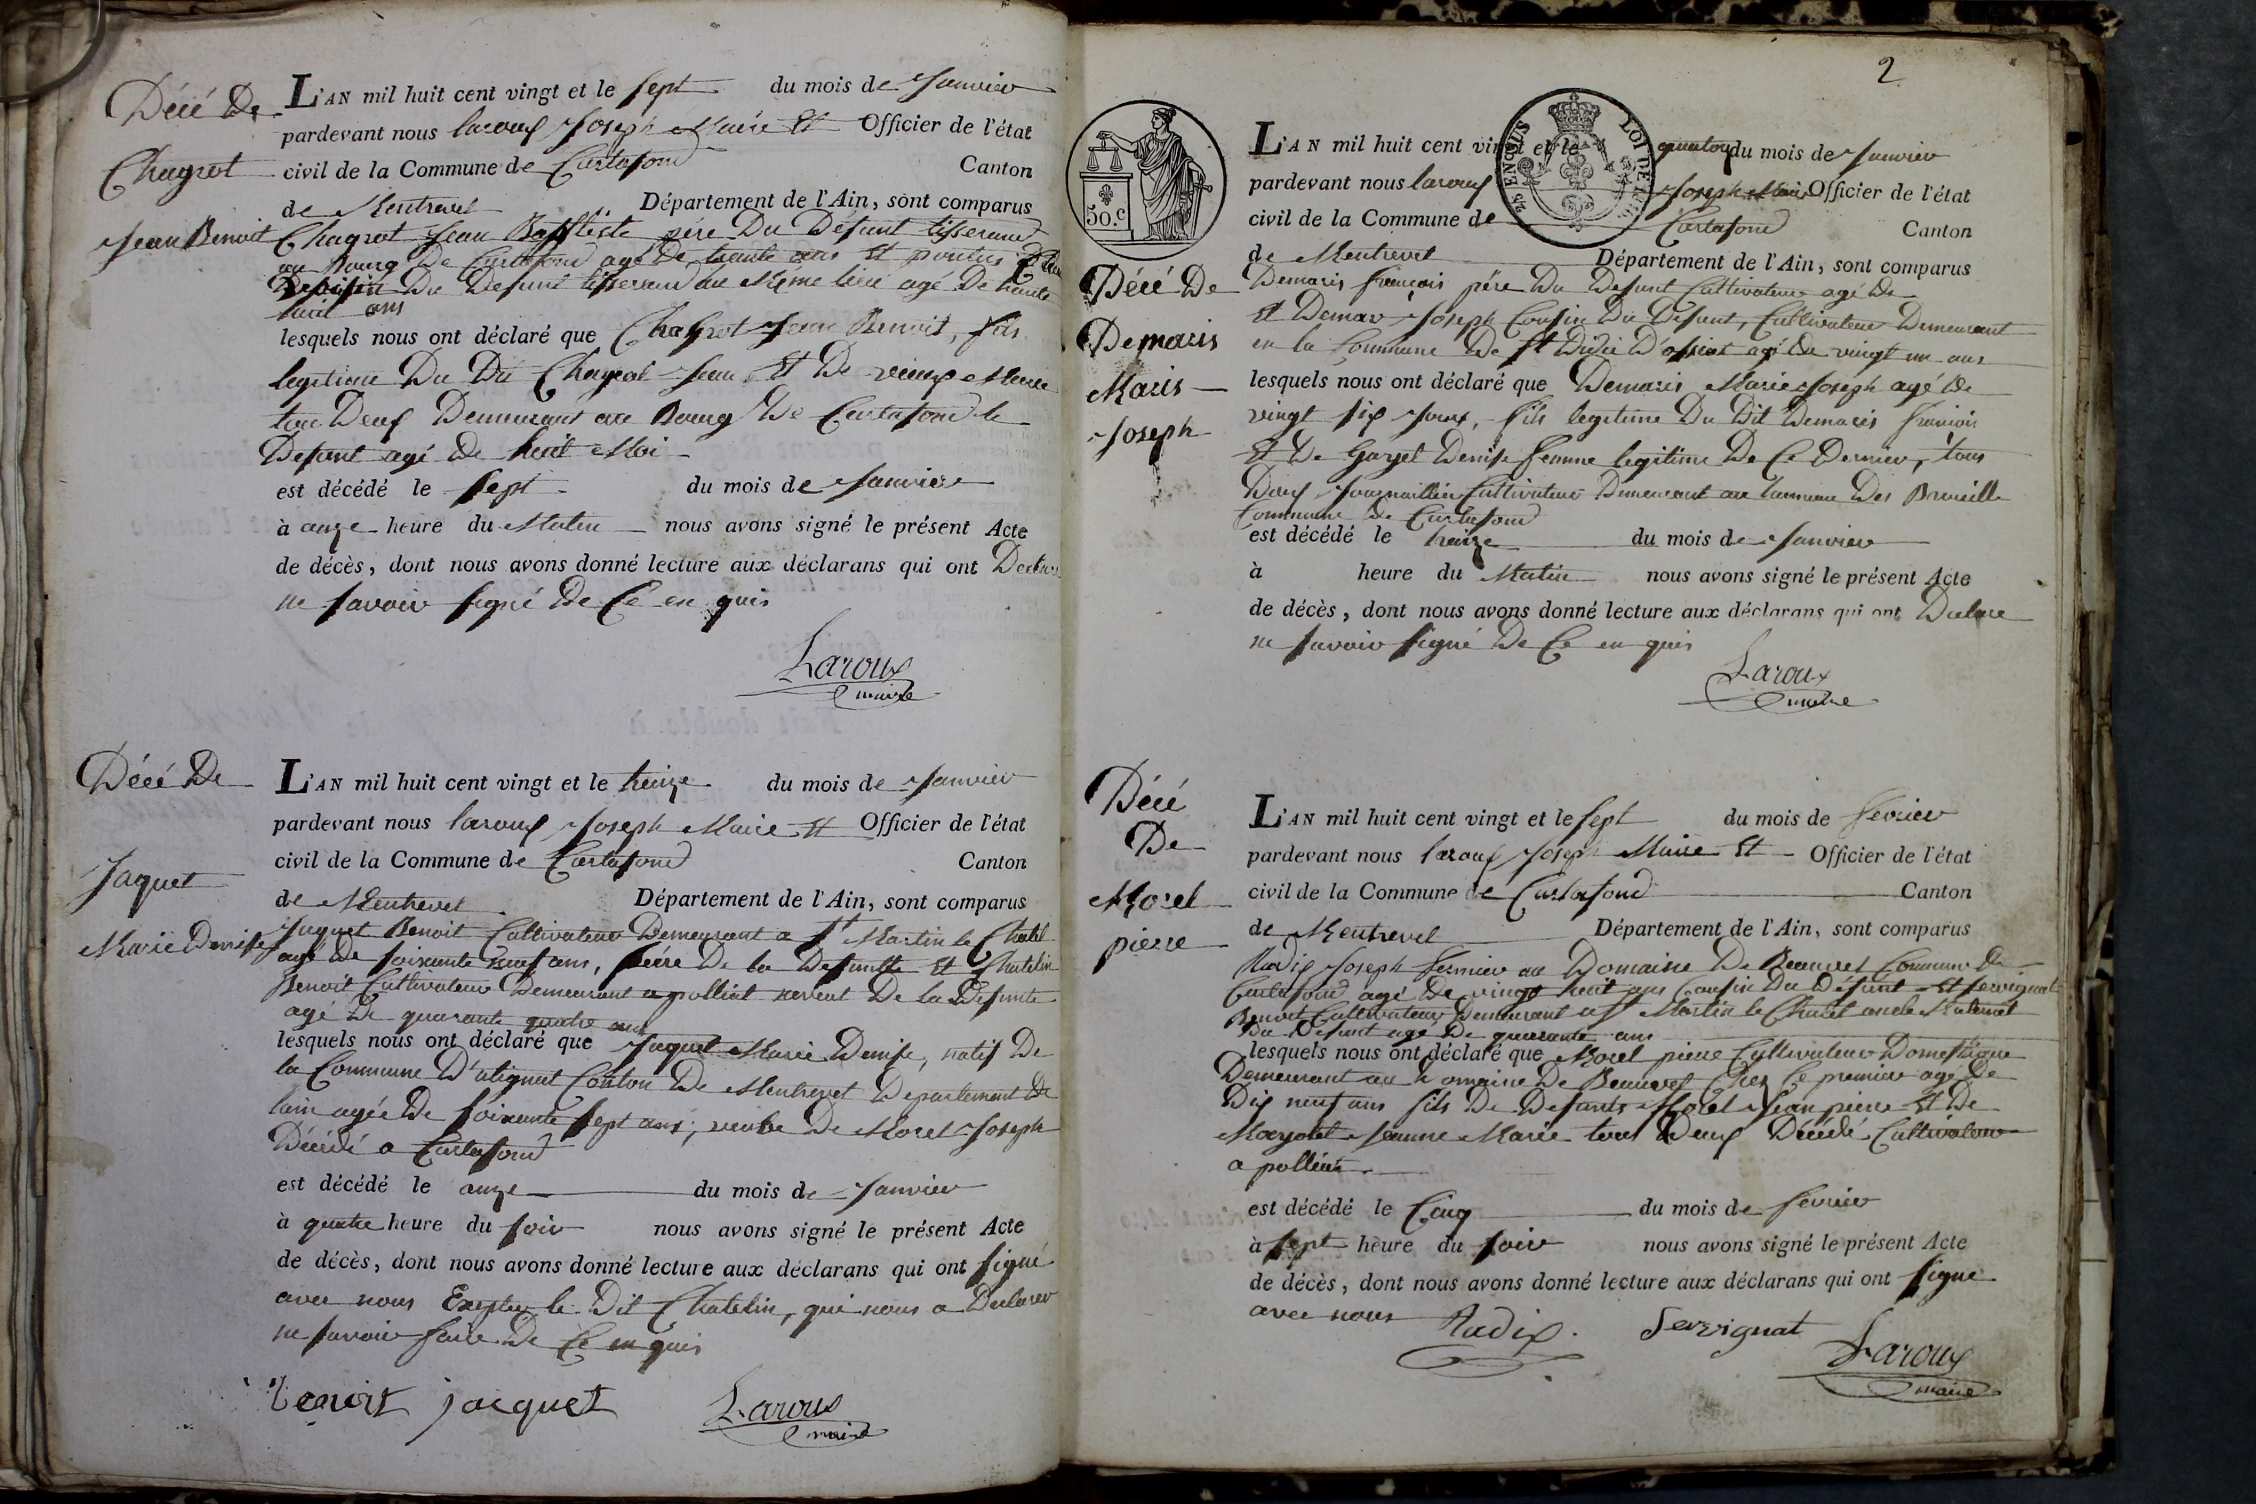 Décé De
Chagrot
Jean Benoit
L'AN mil huit cent vingt et le sept du mois de Janvier
pardevant nous laroux Joseph Maire Et Officier de l'état
civil de la Commune de Curtafond Canton
de Montrevel Département de l'Ain, sont comparus
Chagrot Jean Baptiste père Du Défunt tisserand
au Bourg De Curtafond agé De trente ans Et
Du Defunt tisserand au Même lieu agé De trente
huit ans
lesquels nous ont déclaré que Chagrot Jean Benoit, fils
legitime Du Dit Chagrot Jean Et De Marie
tou Deux Demeurant au Bourg De Curtafond le
Defunt agé de huit Moi
est décédé le sept du mois de Janvier
à onze heure du Matin nous avons signé le présent Acte
de décès, dont nous avons donné lecture aux déclarans qui ont Declare
ne savoir signé De Ce en quis
Laroux
maire
Décé De
Jaquet
Marie Denise
L'AN mil huit cent vingt et le treize du mois de Janvier
pardevant nous laroux Joseph Maire Et Officier de l'état
civil de la Commune de Curtafond Canton
de Montrevel Département de l'Ain, sont comparus
Jaquet Benoit Cultivateur Demeurant a St Martin le Chatel
agé De soixante neuf ans, frère De la Defunte Et Chatelin
Benoit Cultivateur Demeurant a polliat neveut De La Defunte
agé De quarante quatre ans
lesquels nous ont déclaré que Jaquet Marie Denise, natif De
la Commune D'atignat Conton De Montrevel Departement De
lain agée De soixante sept ans, veuve De Morel Joseph
Décédé a Curtafond
est décédé le onze du mois de Janvier
à quatre heure du soir nous avons signé le présent Acte
de décès, dont nous avons donné lecture aux déclarans qui ont signé
avec nous Excepter le Dit Chatelin, qui nous a Declarer
ne savoir faire De Ce en quis
Benoit jacquet
Laroux
maire
2
50.c
LOI DE
Décé De
Demaris
Marie
Joseph
L'AN mil huit cent vingt et le quatorze du mois de Janvier
pardevant nous laroux Joseph Maire Officier de l'état
civil de la Commune de Curtafond Canton
de Montrevel Département de l'Ain, sont comparus
Demaris françois père Du Defunt Cultivateur agé De
Et Joseph Cousin Du Defunt, Cultivateur Demeurant
en la Commune De St Didié D'aussiat agé De vingt un ans
lesquels nous ont déclaré que Demaris Marie Joseph agé De
vingt six Jours, fils legitime Du Dit Demaris françois
Et De Denise femme legitime De Ce Dernier, tous
Deux Journaillier Cultivateur Demeurant au hameau Des
Commune De Curtafond
est décédé le treize du mois de Janvier
à heure du Matin nous avons signé le présent Acte
de décès, dont nous avons donné lecture aux déclarans qui ont Declare
ne savoir signé De Ce en quis
Laroux
maire
Décé
De
Morel
pierre
L'AN mil huit cent vingt et le sept du mois de fevrier
pardevant nous laroux Joseph Maire Et Officier de l'état
civil de la Commune de Curtafond Canton
de Montrevel Département de l'Ain, sont comparus
Radix Joseph fermier au Domaine De Beauvet Commune De
Curtafond agé De vingt huit ans Cousin Du Defunt Et servignat
Benoit Cultivateur Demeurant a St Martin le Chatel oncle Maternel
Du Defunt agé De quarante ans
lesquels nous ont déclaré que Morel pierre Cultivateur Domestique
Demeurant au Domaine De Beauvet Chez Ce premier agé De
Dix neuf ans fils De Defunts Morel Jean pierre Et De
Jeanne Marie tous Deux Décédé Cultivateur
a polliat
est décédé le Cinq du mois de fevrier
à sept heure du soir nous avons signé le présent Acte
de décès, dont nous avons donné lecture aux déclarans qui ont signé
avec nous
Radix Servignat
Laroux
maire